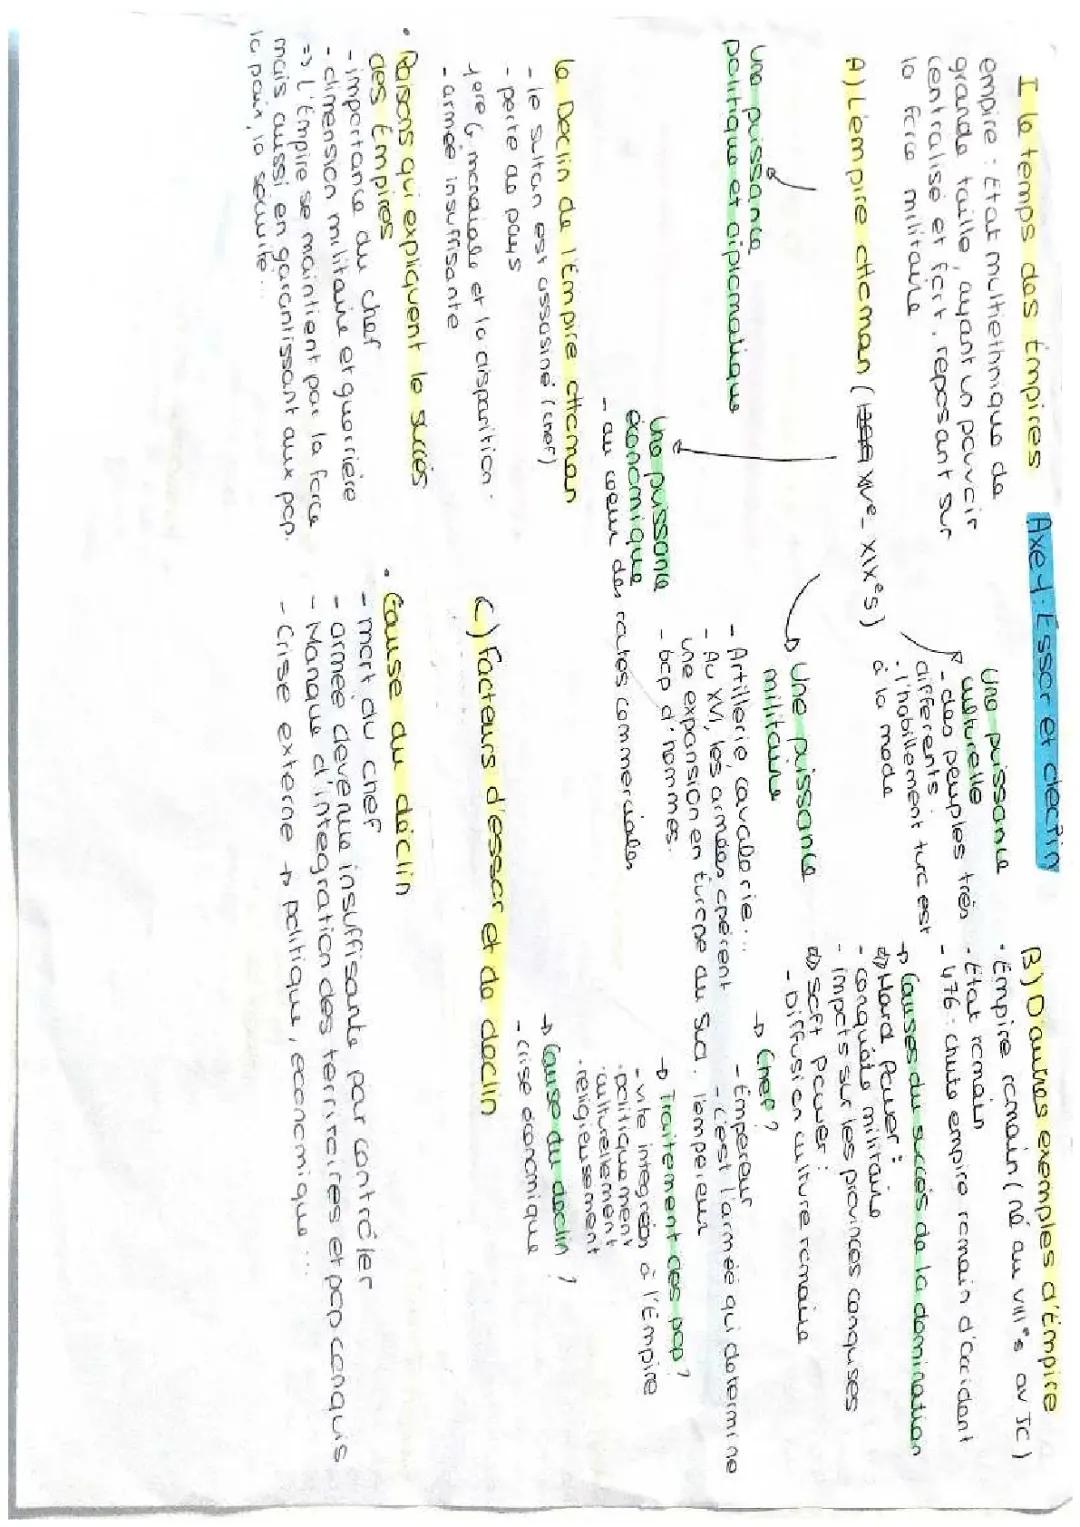 Axe 1 : Essor et declin
I le temps des Empires
empire : Etat multiethnique de
grande taille, ayant un pouvoir
centralisé et fort, reposant sur
la force militaire
A) L'empire ottoman ( XIVe - XIXe s)
Une puissance
politique et diplomatique
Une puissance
économique
- au coeur des routes commerciales
Une puissance
culturelle
- des peuples très
différents
- l'habillement turc est
à la mode
Une puissance
militaire
- Artillerie, cavalerie...
- Au XVI, les armées opèrent
une expansion en Europe du Sud.
- bcp d'hommes.
le Declin de l'Empire ottoman
- le sultan est assasiné (chef)
- perte de pays
1ere G mondiale et la disparition.
- armée insuffisante
B) D'autres exemples d'Empire
• Empire romain ( né au VIII°s av JC )
- Etat romain
- 476 : chute empire romain d'Occident
→ Causes du succès de la domination
⇒ Hard Power :
- conquête militaire
- impots sur les provinces conquises
⇒ Soft Power :
- Diffusion culture romaine
→ Chef ?
- Empereur
- C'est l'armée qui determine
l'empereur
→ Traitement des pop ?
- vite integrées à l'Empire
• politiquement
• culturellement
• religieusement
→ Cause du declin ?
- crise économique
C) Facteurs d'essor et de declin
• Raisons qui expliquent le succès
des Empires
- importance du chef
- dimension militaire et guerrière
=> L'Empire se maintient par la force
mais aussi en garantissant aux pop.
la paix, la sécurité...
• Cause du déclin
- mort du chef
- armée devenue insuffisante par contrôler
- Manque d'integration des territoires et pop conquis
- Crise externe → politique, economique...